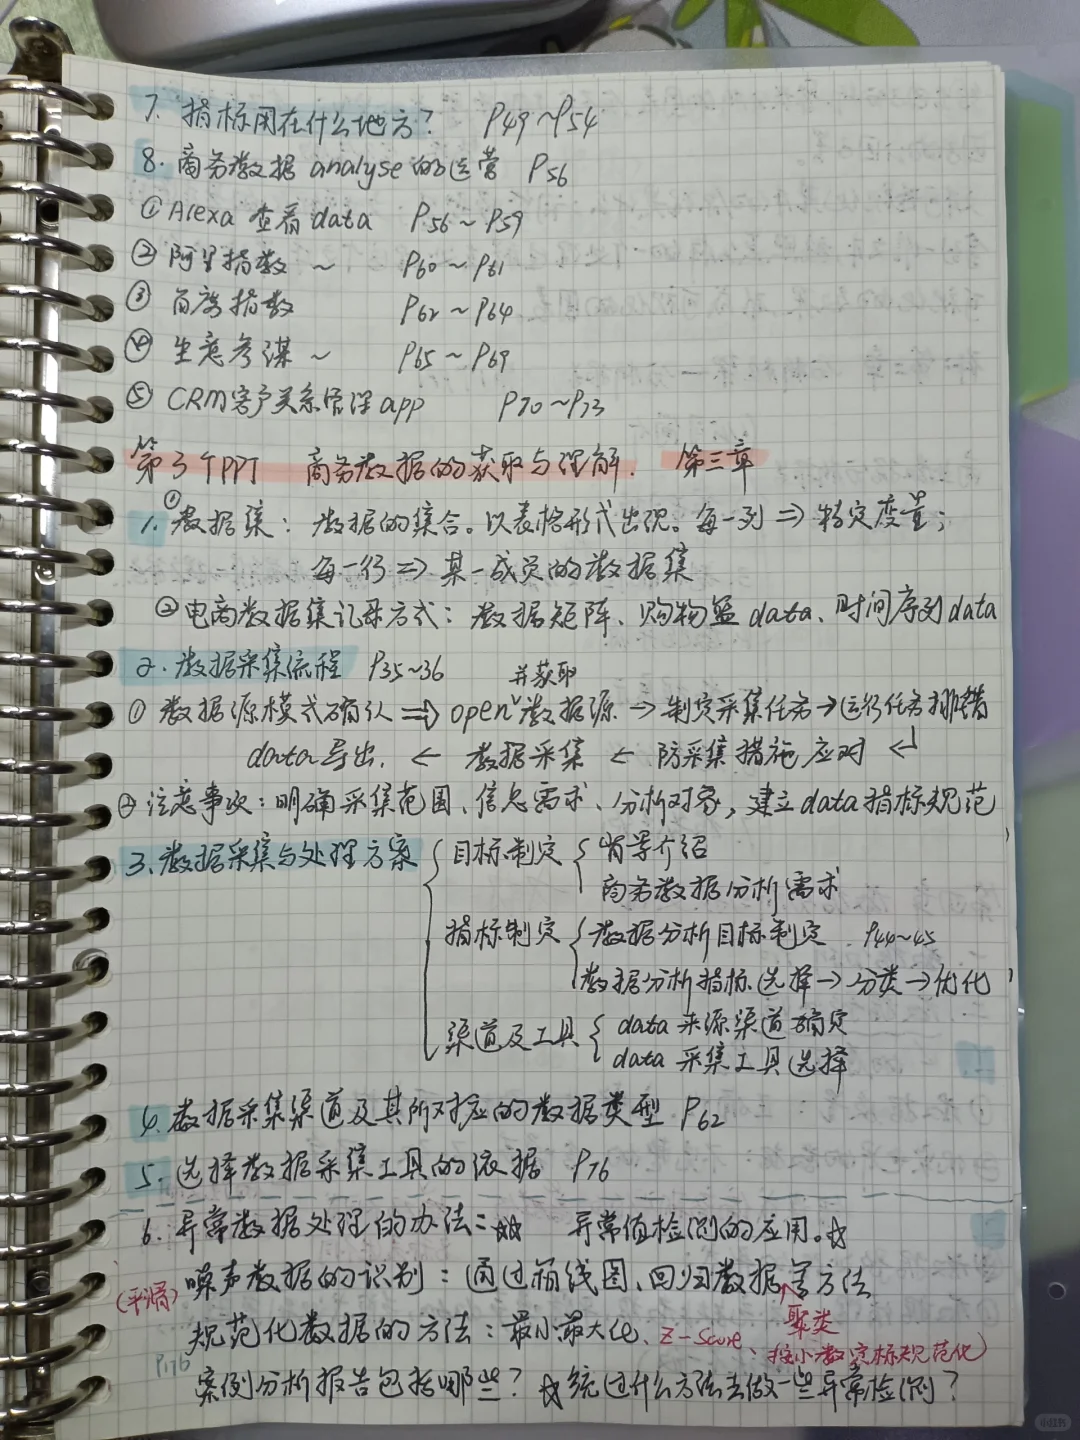 7. 指标用在什么地方? P49~P54
8. 商务数据 analyse的运营 P56
① Alexa 查看data P56~P59
② 阿里指数 ~ P60~P61
③ 百度指数 P62~P64
④ 生意参谋 ~ P65~P69
⑤ CRM客户关系管理app P70~P73
第3个PPT 商务数据的获取与理解. 第三章
1. ①数据集: 数据的集合。以表格形式出现。每一列⇒特定变量;
每一行⇒某一成员的数据集
②电商数据集记录方式: 数据矩阵、购物篮data、时间序列data
2. 数据采集流程 P35~36
并获取
① 数据源模式确认⇒open数据源→制定采集任务→运行任务排错
data导出. ← 数据采集 ← 防采集措施应对 ↵
② 注意事项: 明确采集范围、信息需求、分析对象, 建立data指标规范
3. 数据采集与处理方案 { 目标制定 { 背景介绍
商务数据分析需求
指标制定 { 数据分析目标制定 P44~45
数据分析指标选择→分类→优化
渠道及工具 { data来源渠道确定
data采集工具选择
4. 数据采集渠道及其所对应的数据类型 P62
5. 选择数据采集工具的依据 P76
6. 异常数据处理的办法: ☆☆ 异常值检测的应用。☆
(平滑) 噪声数据的识别: 通过箱线图、回归数据等方法
聚类
规范化数据的方法: 最小最大化、Z-Score、按小数定标规范化)
P176
案例分析报告包括哪些? ☆统过什么方法去做一些异常检测?